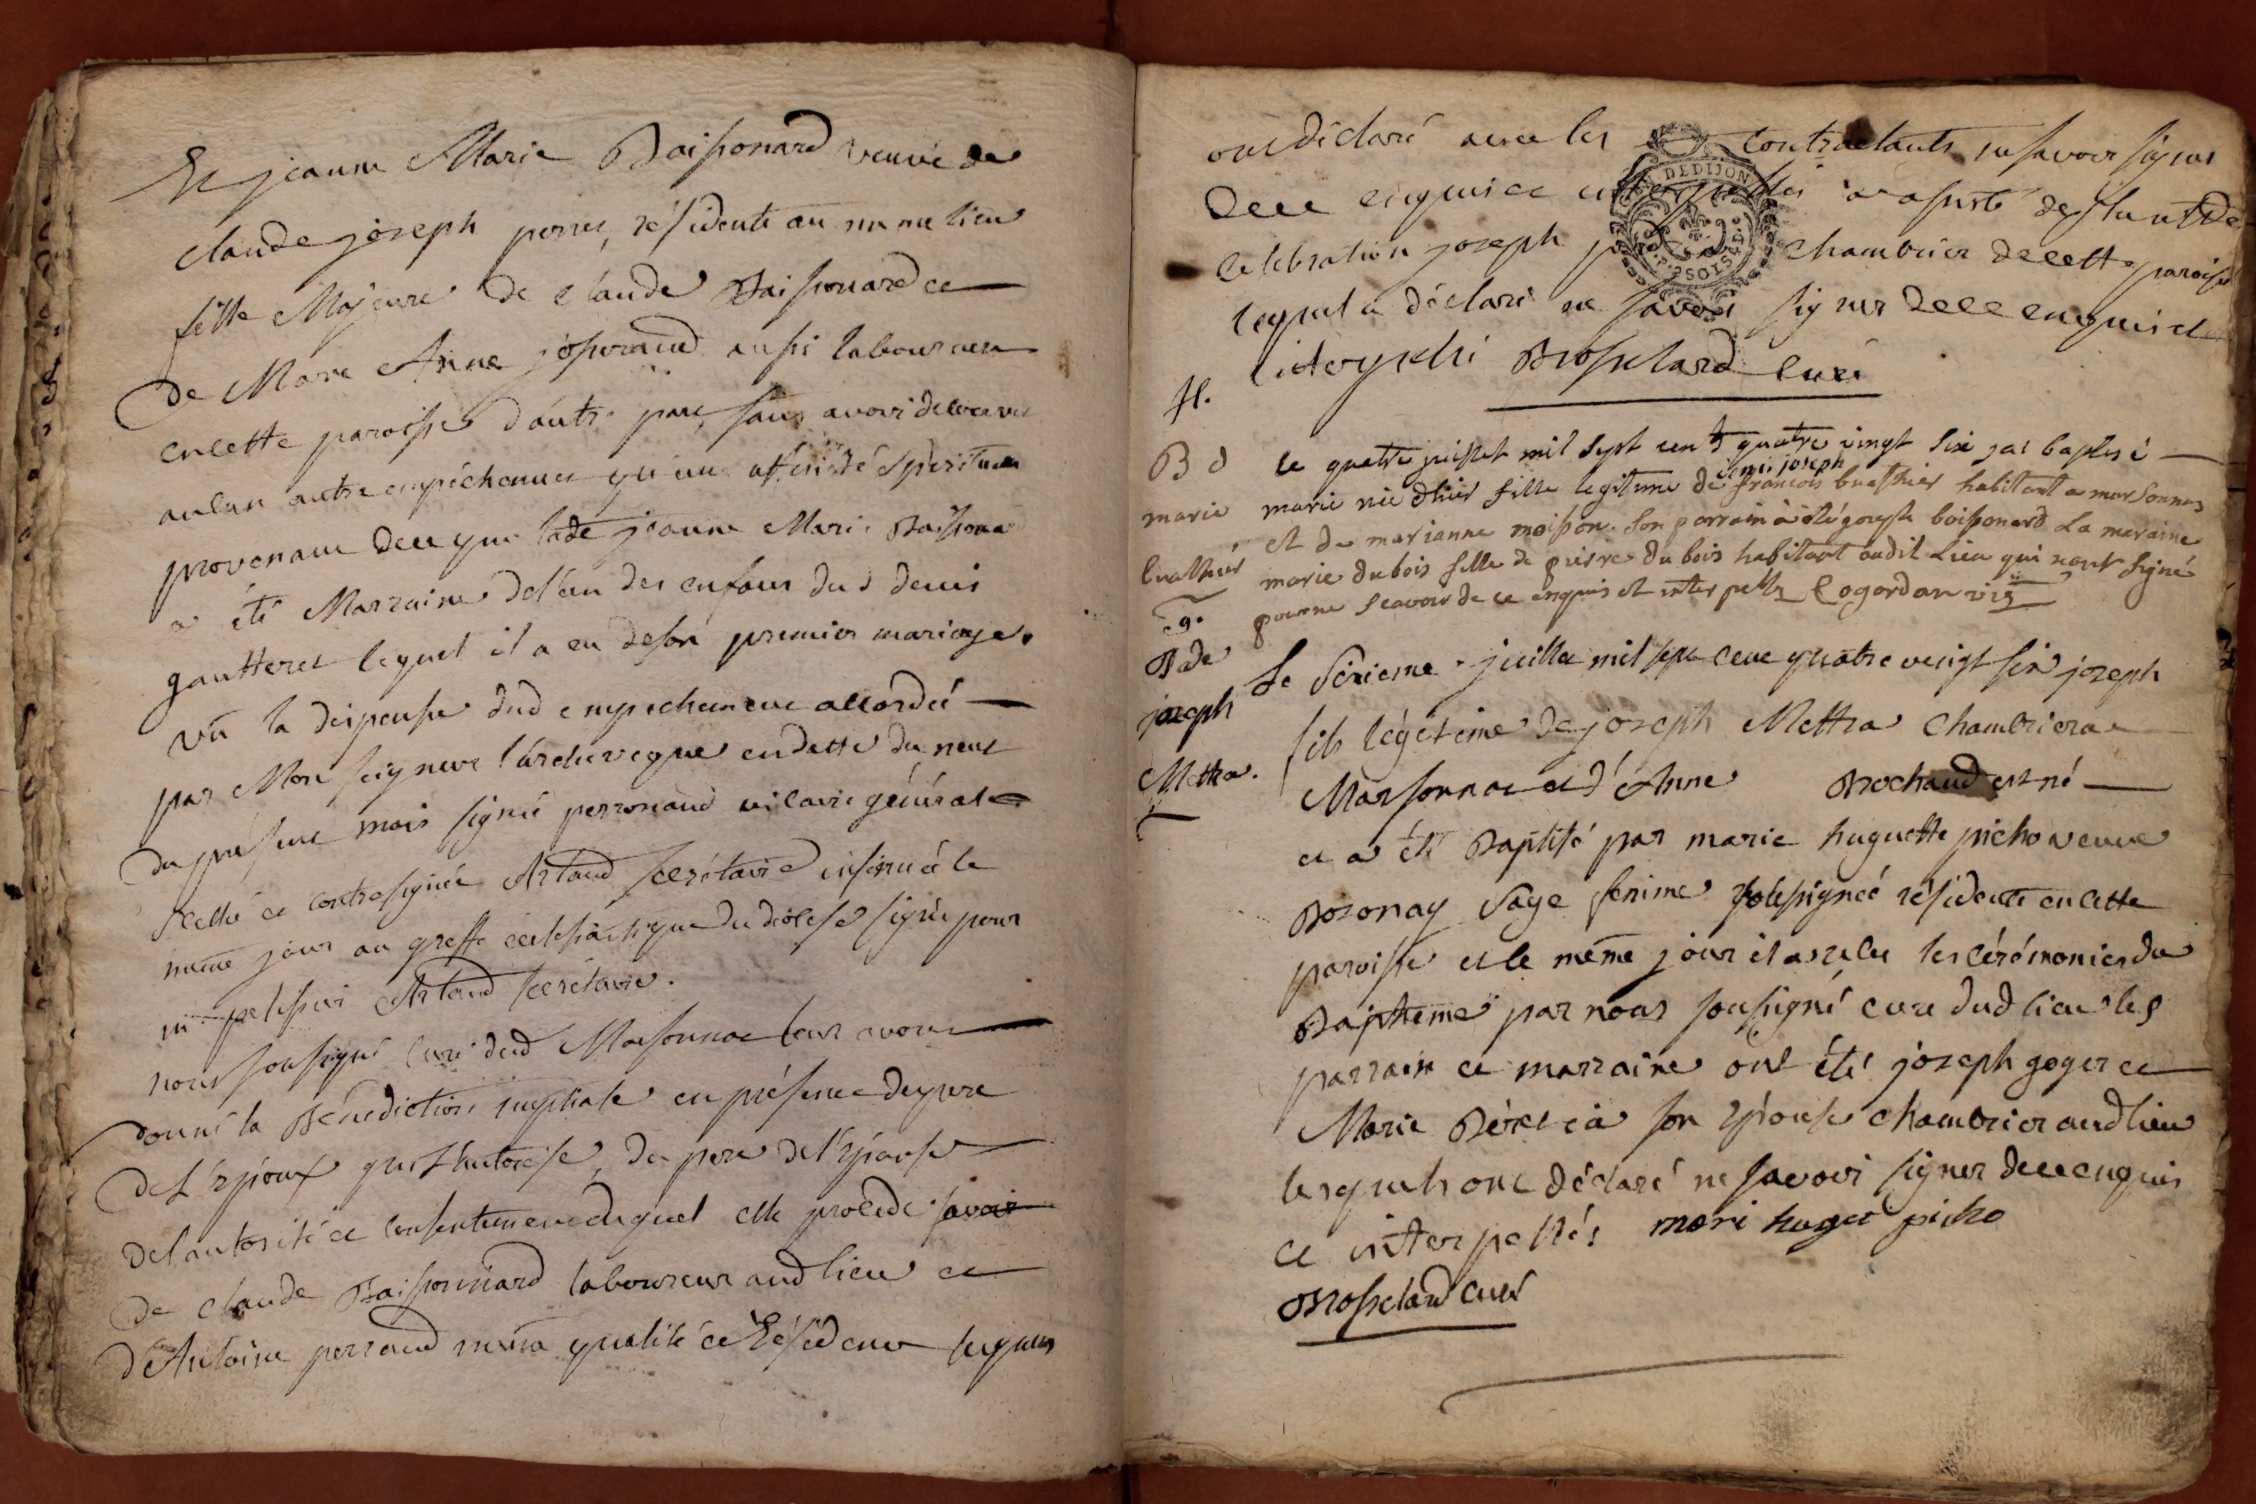 Et jeanne Marie Boissonard veuve de
claude joseph perret, résidente au même lieu
fille Majeure de claude Boissonard et
de Marie Anne josserand aussi laboureur
en cette paroisse d'autre part, sans avoir decouvert
aucun autre empêchement qu'une affinité spirituelle
provenant de ce que lade jeanne Marie Boissona
a été Marraine de l'un des enfans dud denis
gautheret lequel il a eu de son premier mariage.
vû la dispense dud empechement accordée
par Mon seigneur l'archeveque en datte du neuf
du present mois signée perronaud vicaire général
scellé et contresignée Artaud secrétaire insinuée le
même jour au greffe ecclesiastique du diocese signée pour
Artaud secrétaire.
nous soussigné curé dud Marsonnas leur avons
donné la Bénediction nuptiale en présence du pere
de l'époux qui l'autorise, du pere de l'épouse
de l'autorité et consentement duquel elle procede savoir
de claude Boissonnard laboureur aud lieu et
d'Antoine perraud même qualité et résidence lesquels
ont déclaré avec les contractants ne savoir signer
de ce enquis et interpellés a assisté
célébration joseph chambrier de cette paroisse
lequel a déclaré ne savoir signer de ce enquis et
interpellé Brosselard curé
H.
B d
marie
buathier
le quatre juillet mil sept cent quatre vingt six jai baptisé
marie née d'hier fille legitime de françois buathier habitant a marsonnas
denis joseph
et de marianne moisson. Son parrain à été joseph boissonard La maraine
marie dubois fille de pierre dubois habitant audit Lieu qui n'ont signé
pour ne scavoir de ce enquis et interpellés Cogordan vic
9.
B de
joseph
Mettra.
Le sixieme juillet mil sept cent quatre vingt six joseph
fils légitime de joseph Mettra chambrier a
Marsonnas et d'Anne Brochaud est né
et a été Baptisé par marie huguette picho veuve
Bozonay sage femme soussignée résidente en cette
paroisse et le même jour il a reçu les cérémonies du
Baptheme par nous soussigné curé dud lieu les
parrain et marraine ont été joseph goyer et
Marie son épouse chambrier aud lieu
lesquels ont déclaré ne savoir signer de ce enquis
et interpellés mari huget picho
Brosselard curé
DE DIJON